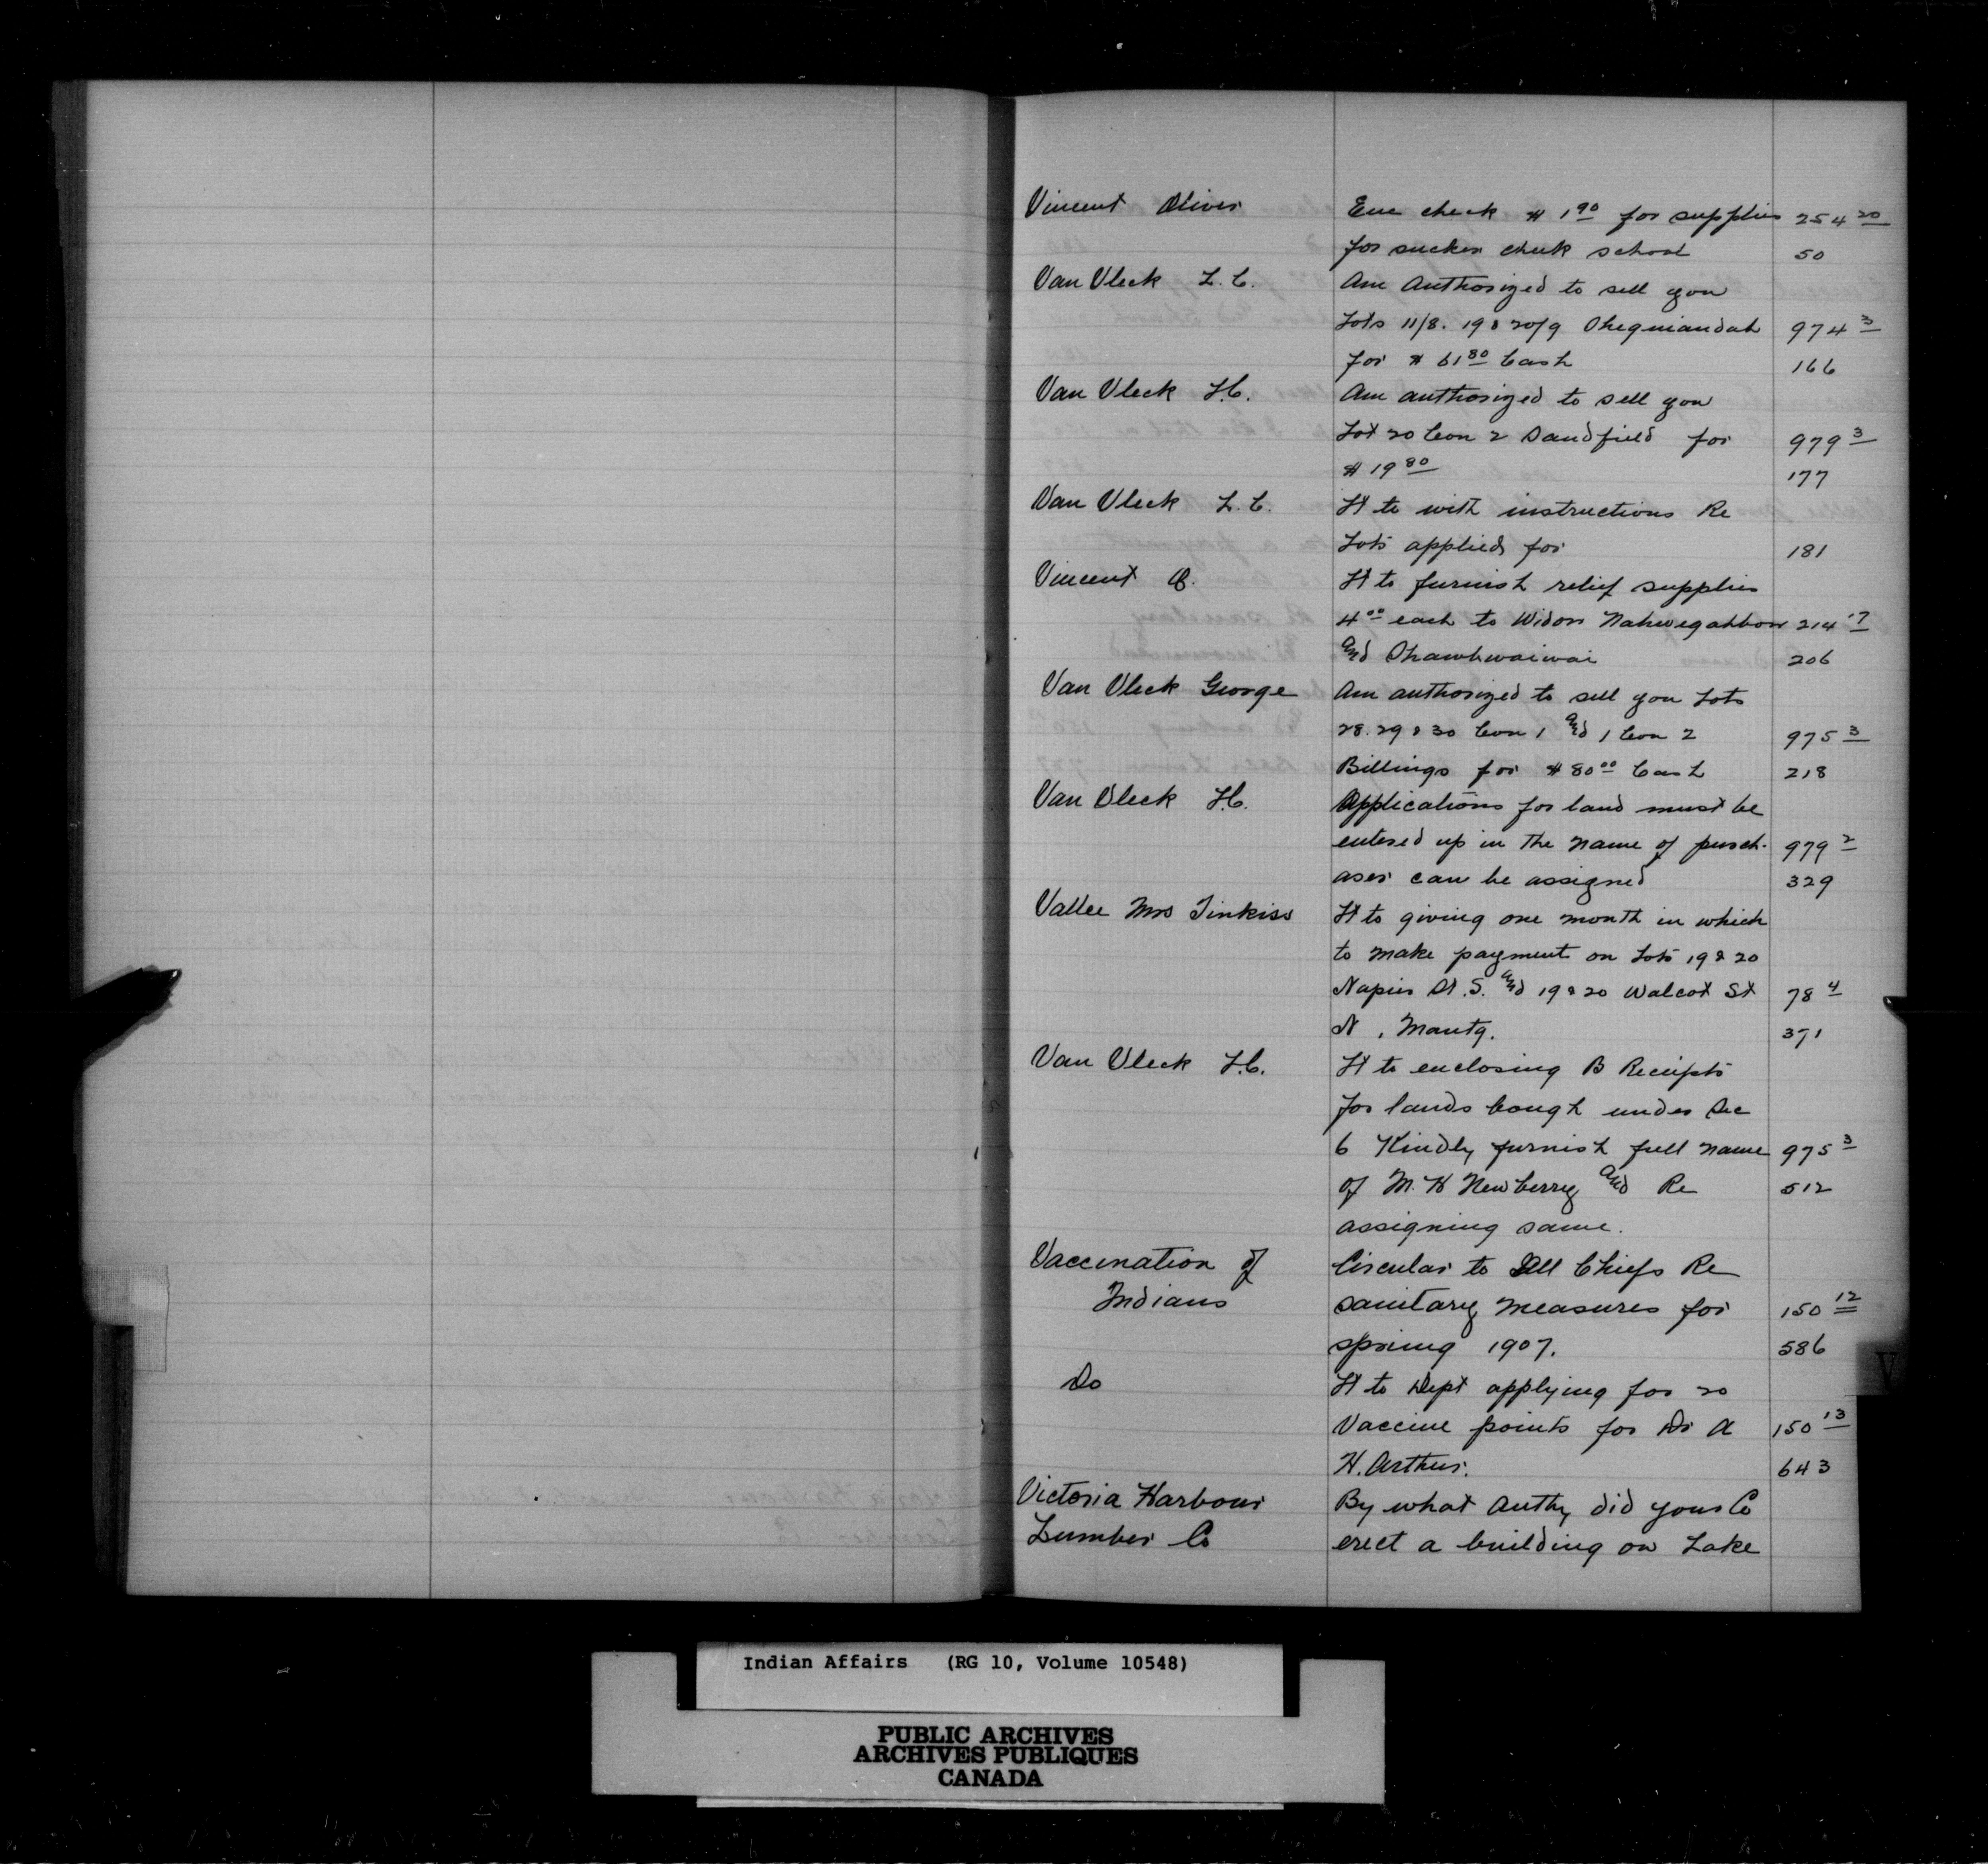 Vincent Oliver Enc check $ 1 90 for supplies 254 20
for sucker cheek school 50
Van Vleck L. C. Am Authorized to sell you
Lots 11/8. 19 & 20/9 Sheguiandah 974 3
for $ 61 80 Cash 166
Van Vleck L.C. Am authorized to sell you
Lot 20 Con 2 Sandfield for 979 3
$ 19 80 177
Van Vleck L. C. Lt to with instructions Re
Lots applied for 181
Vincent O. Lt to furnish relief supplies
4 00 each to Widow Nahwegahbow 214 17
and Shawhwaiwai 206
Van Vleck George Am authorized to sell you Lots
28. 29 & 30 Con 1 and 1 Con 2 975 3
Billings for $ 80 00 Cash 218
Van Vleck L.C. Applications for land must be
entered up in the name of purch- 979 2
aser can be assigned 329
Vallee Mrs Jinkiss Lt to giving one month in which
to make payment on Lots 19 & 20
Napier St. S. and 19 & 20 Walcot St 78 4
N, Mantg. 371
Van Vleck L.C. Lt to enclosing B Receipts
for lands bough under Sec
6 Kindly furnish full name 975 3
of M. H Newberry and Re 512
assigning same.
Vaccination of Circular to All Chiefs Re
Indians sanitary measures for 150 12
spring 1907. 586
Do Lt to Dept applying for 20
Vaccine points for Dr A 150 13
H. Arthur. 643
Victoria Harbour By what Authy did your Co
Lumber Co erect a building on Lake
V
Indian Affairs (RG 10, Volume 10548)
PUBLIC ARCHIVES
ARCHIVES PUBLIQUES
CANADA